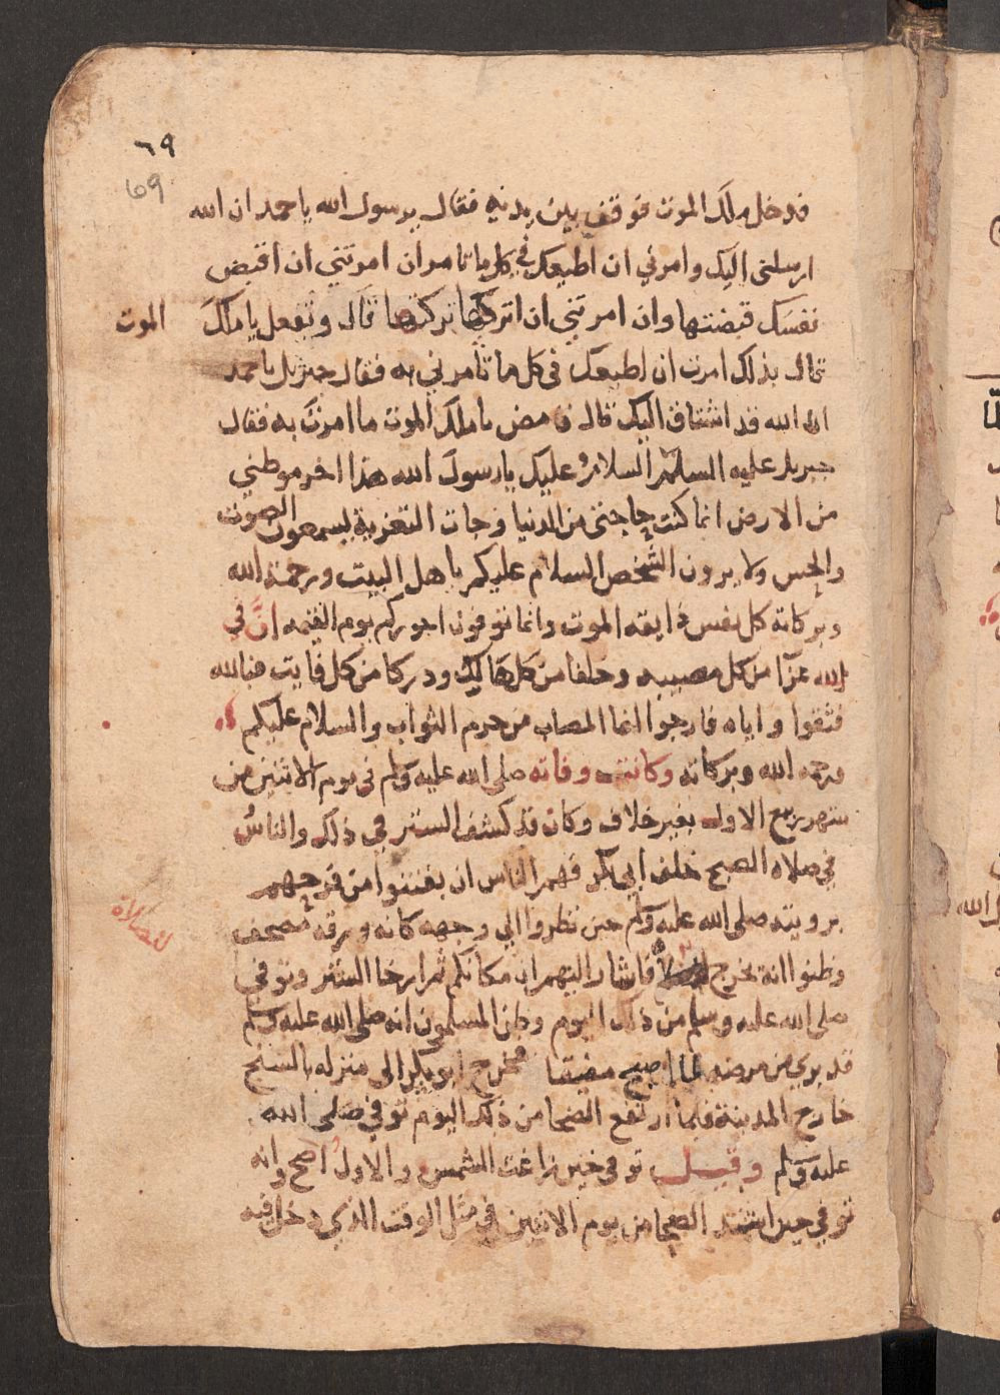 ٦٩
69
فدخل ملك الموت فوقف بين يديه فقال يرسول الله ياحمد ان الله
ارسلني اليك وامرني ان اطيعك في كل ما تامر ان امرتني ان اقبض
نفسك قبضتها وان امرتني ان اتركها تركتها قال وتفعل يا ملك الموت
قال بذلك امرت ان اطيعك في كل ما تامرني به فقال جبريل ياحمد
ان الله قد اشتاق اليك قال فامض يا ملك الموت ما امرت به فقال
جبريل عليه السلم السلام عليك يارسول الله هذا اخر موطني
من الارض انما كنت حاجتي من الدنيا وجات التعزية يسمعون الصوت
والحس ولا يرون الشخص السلام عليكم ياهل البيت ورحمة الله
وبركاته كل نفس ذايقه الموت وانما توفون اجوركم يوم القيمه ان في
الله عزا من كل مصيبه وخلفا من كل هالك ودركا من كل فايت فبالله
فثقوا واياه فارجوا انما المصاب من حرم الثواب والسلام عليكم
ورحمه الله وبركاته وكانت وفاته صلى الله عليه وسلم في يوم الاثنين من
شهر ربيع الاول بغير خلاف وكان قد كشف الستر في ذلك والناس
في صلاه الصبح خلف ابي بكر فهم الناس ان يفتنوا من فرحهم
برويته صلى الله عليه وسلم حين نظروا الي وجهه كانه ورقة مصحف
وظنوا انه يخرج للصلاة فاشار اليهم ان مكانكم ثم ارخا الستر وتوفي
للصلاة
صلى الله عليه وسلم من ذلك اليوم وظن المسلمون انه صلى الله عليه وسلم
قد بري من مرضه لما اصبح مفيقا فخرج ابو بكر الى منزله بالسنح
خارج المدينة فلما ارتفع الضحا من ذلك اليوم توفي صلى الله
عليه وسلم وقيل توفي حين زاغت الشمس والاول اصح وانه
توفي حين اشتد الضحا من يوم الاثنين في مثل الوقت الذي دخل فيه